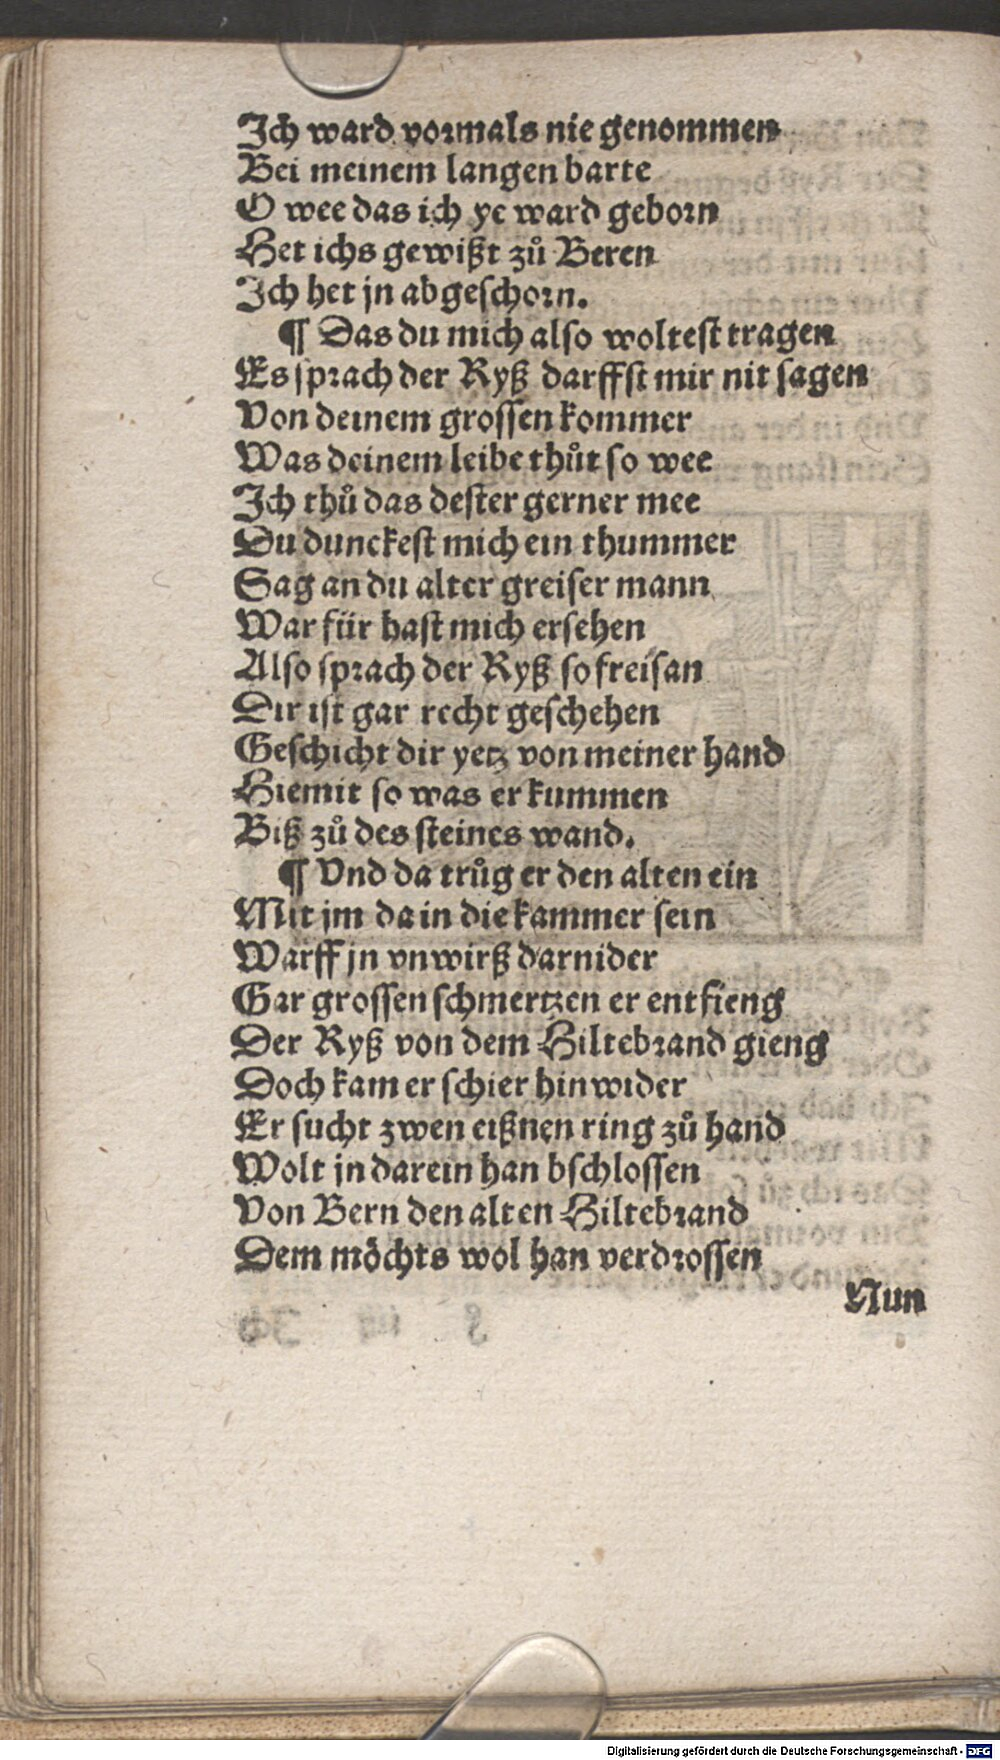 Ich ward vormals nie genommen
Bei meinem langen barte
O wee das ich ye ward geborn
Het ichs gewißt zů Beren
Ich het jn abgeschorn.
¶ Das du mich also woltest tragen
Es sprach der Ryß darffst mir nit sagen
Von deinem grossen kommer
Was deinem leibe thůt so wee
Ich thů das dester gerner mee
Du dunckest mich ein thummer
Sag an du alter greiser mann
War für hast mich ersehen
Also sprach der Ryß so freisan
Dir ist gar recht geschehen
Geschicht dir yetz von meiner hand
Hiemit so was er kummen
Biß zů des steines wand.
¶ Vnd da trůg er den alten ein
Mit jm da in die kammer sein
Warff jn vnwirß darnider
Gar grossen schmertzen er entfieng
Der Ryß von dem Hiltebrand gieng
Doch kam er schier hin wider
Er sucht zwen eißnen ring zů hand
Wolt jn darein han bschlossen
Von Bern den alten Hiltebrand
Dem möchts wol han verdrossen
Nun
Digitalisierung gefördert durch die Deutsche Forschungsgemeinschaft - DFG